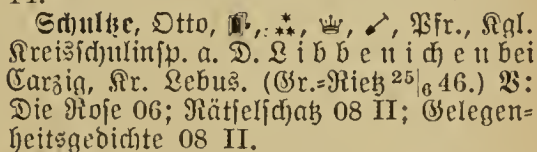 Schultze, Otto, Pfr., Kgl.
Kreisschulinsp. a. D. Libbenichen bei
Carzig, Kr. Lebus. (Gr.=Rietz 25|6 46.) V:
Die Rose 06; Rätselschatz 08 II; Gelegen=
heitsgedichte 08 II.